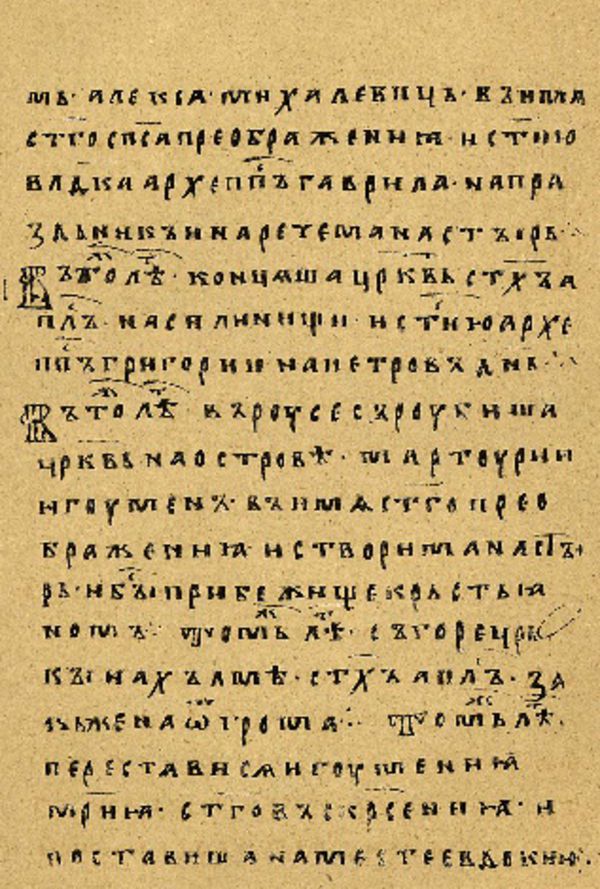 мь · алекѕа · михалевицъ · въ имѧ
стго сп҃са преображениꙗ · и ст҃ию
влдка архепп҃ъ гаврила · на пра
здьникъ и нарете манастырь ·
Въ то лѣ · концѧша ц҃рквь ст҃хъ а
пл҃ъ · на силинищи · и ст҃ию архе
пп҃ъ григории на петровъ днь ·
Въ то лѣ · въ роусе съроубиша
црквь на островѣ · мартоурии
игоуменъ · въ имѧ ст҃го прео
бражениꙗ · и створи манасты
рь · и бы прибежище крьстьꙗ
номъ · Томь лѣ · съгоре црк
къı на хълмѣ · ст҃хъ апл҃ъ · за
жьжена ѿ грома · Томь лѣ ·
перестависѧ игоумениꙗ
мриꙗ · ст҃го въскрсениꙗ · и
поставиша на месте евдокию ·